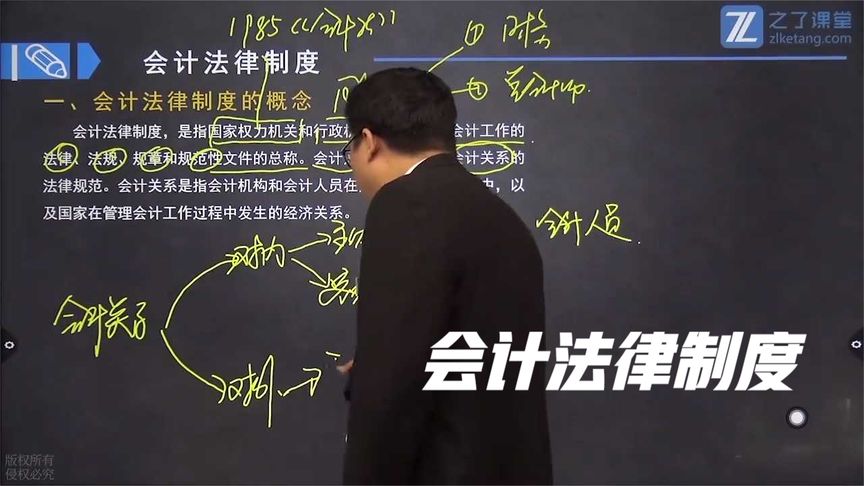 之了课堂
zlketang.com
1985《会计法》
① 财务
②
会计法律制度
一、会计法律制度的概念
会计法律制度，是指国家权力机关和行政 会计工作的
法律、法规、规章和规范性文件的总称。会计 会计关系的
法律规范。会计关系是指会计机构和会计人员在 中，以
及国家在管理会计工作过程中发生的经济关系。
会计人员
对内
会计关系
对外
会计法律制度
版权所有
侵权必究